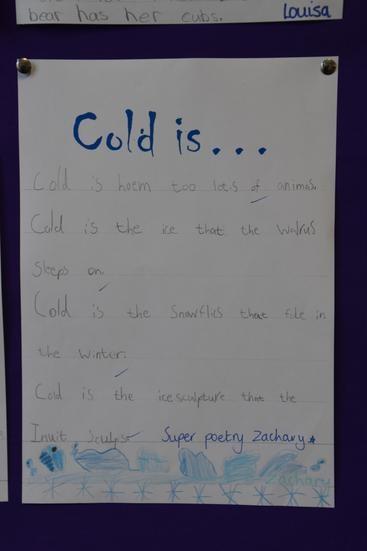 bear has her cubs. Louisa
Cold is...
Cold is hoem too lots of animals.
Cold is the ice that the walrus
sleeps on.
Cold is the snowflics that file in
the winter.
Cold is the icesculpture that the
Inuit sculpt Super poetry Zachary
Zachary